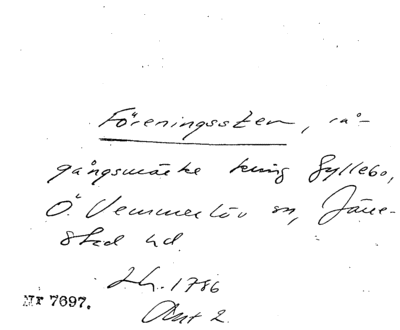 Föreningssten, rå-
gångsmärke kring Gyllebo,
Ö. Vemmerlöv sn, Järre-
stad hd.
Lh. 1786
Nr 7697.